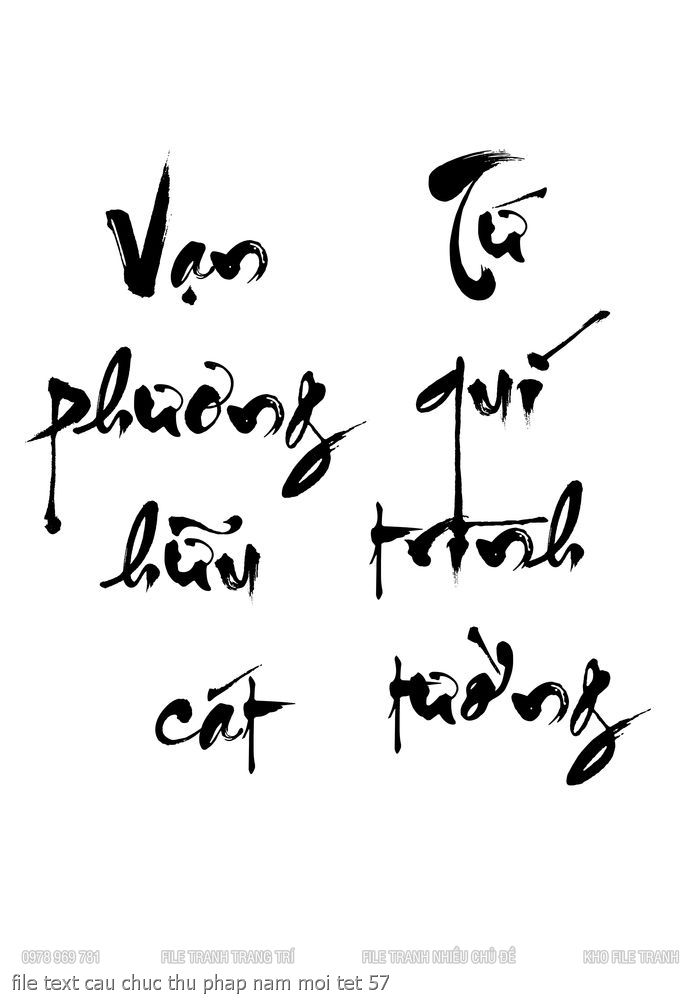 Vạn
phương
hữu
cát
Tứ
quí
trình
tường
0978 969 781 FILE TRANH TRANG TRÍ FILE TRANH NHIỀU CHỦ ĐỀ KHO FILE TRANH
file text cau chuc thu phap nam moi tet 57